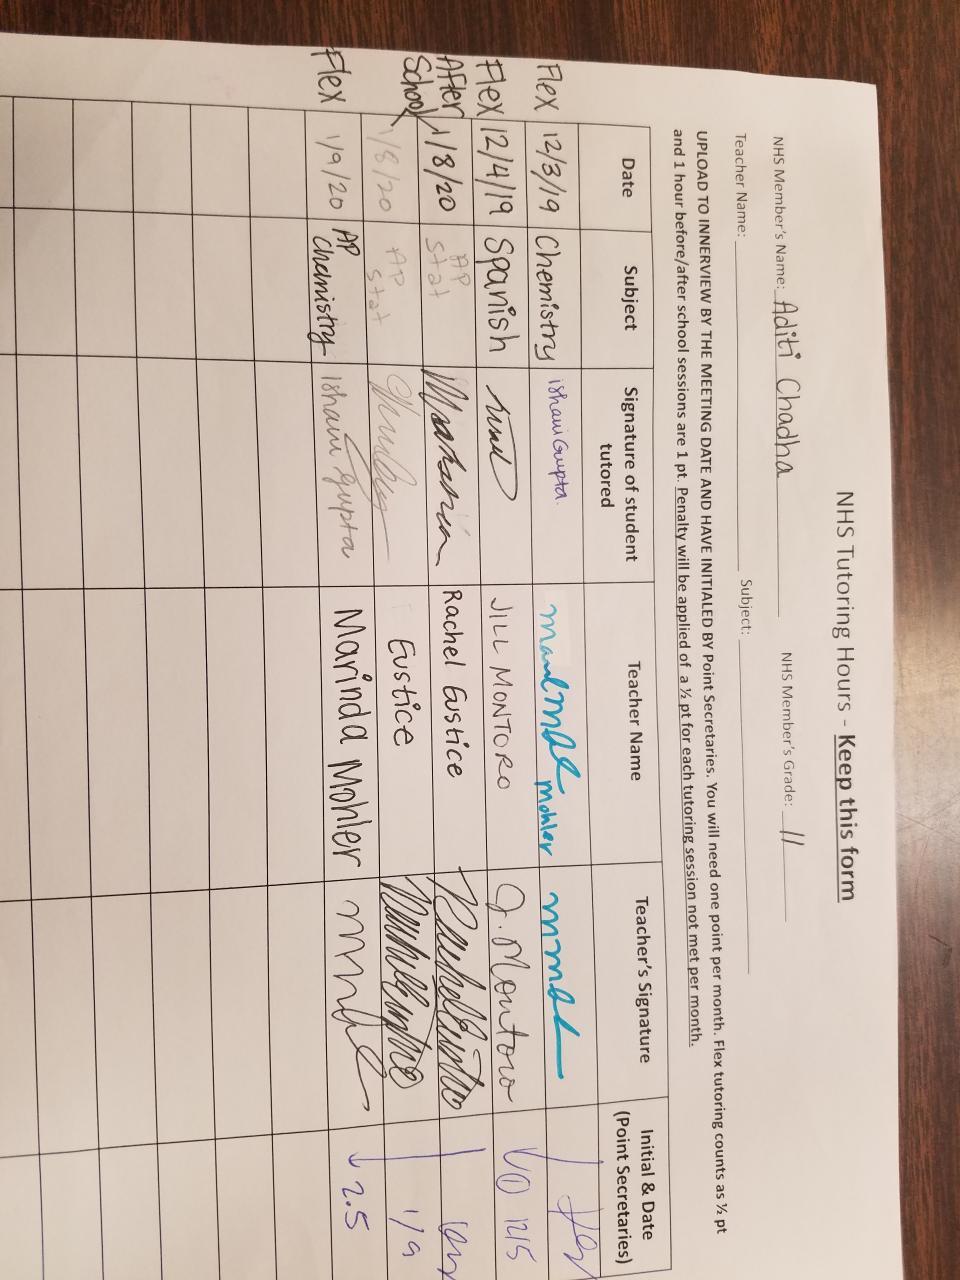 NHS Tutoring Hours - Keep this form
NHS Member's Name: Aditi Chadha NHS Member's Grade: 11
Teacher Name: Subject:
UPLOAD TO INNERVIEW BY THE MEETING DATE AND HAVE INITIALED BY Point Secretaries. You will need one point per month. Flex tutoring counts as ½ pt
and 1 hour before/after school sessions are 1 pt. Penalty will be applied of a ½ pt for each tutoring session not met per month.
Date Subject Signature of student tutored Teacher Name Teacher's Signature Initial & Date (Point Secretaries)
Flex 12/3/19 Chemistry Ishani Gupta Mohler
Flex 12/4/19 Spanish JILL MONTORO J. Montoro 12/5
After School 1/8/20 AP Stat Rachel Eustice
1/8/20 AP Stat Eustice 1/9
Flex 1/9/20 AP Chemistry Ishani Gupta Marinda Mohler 2.5